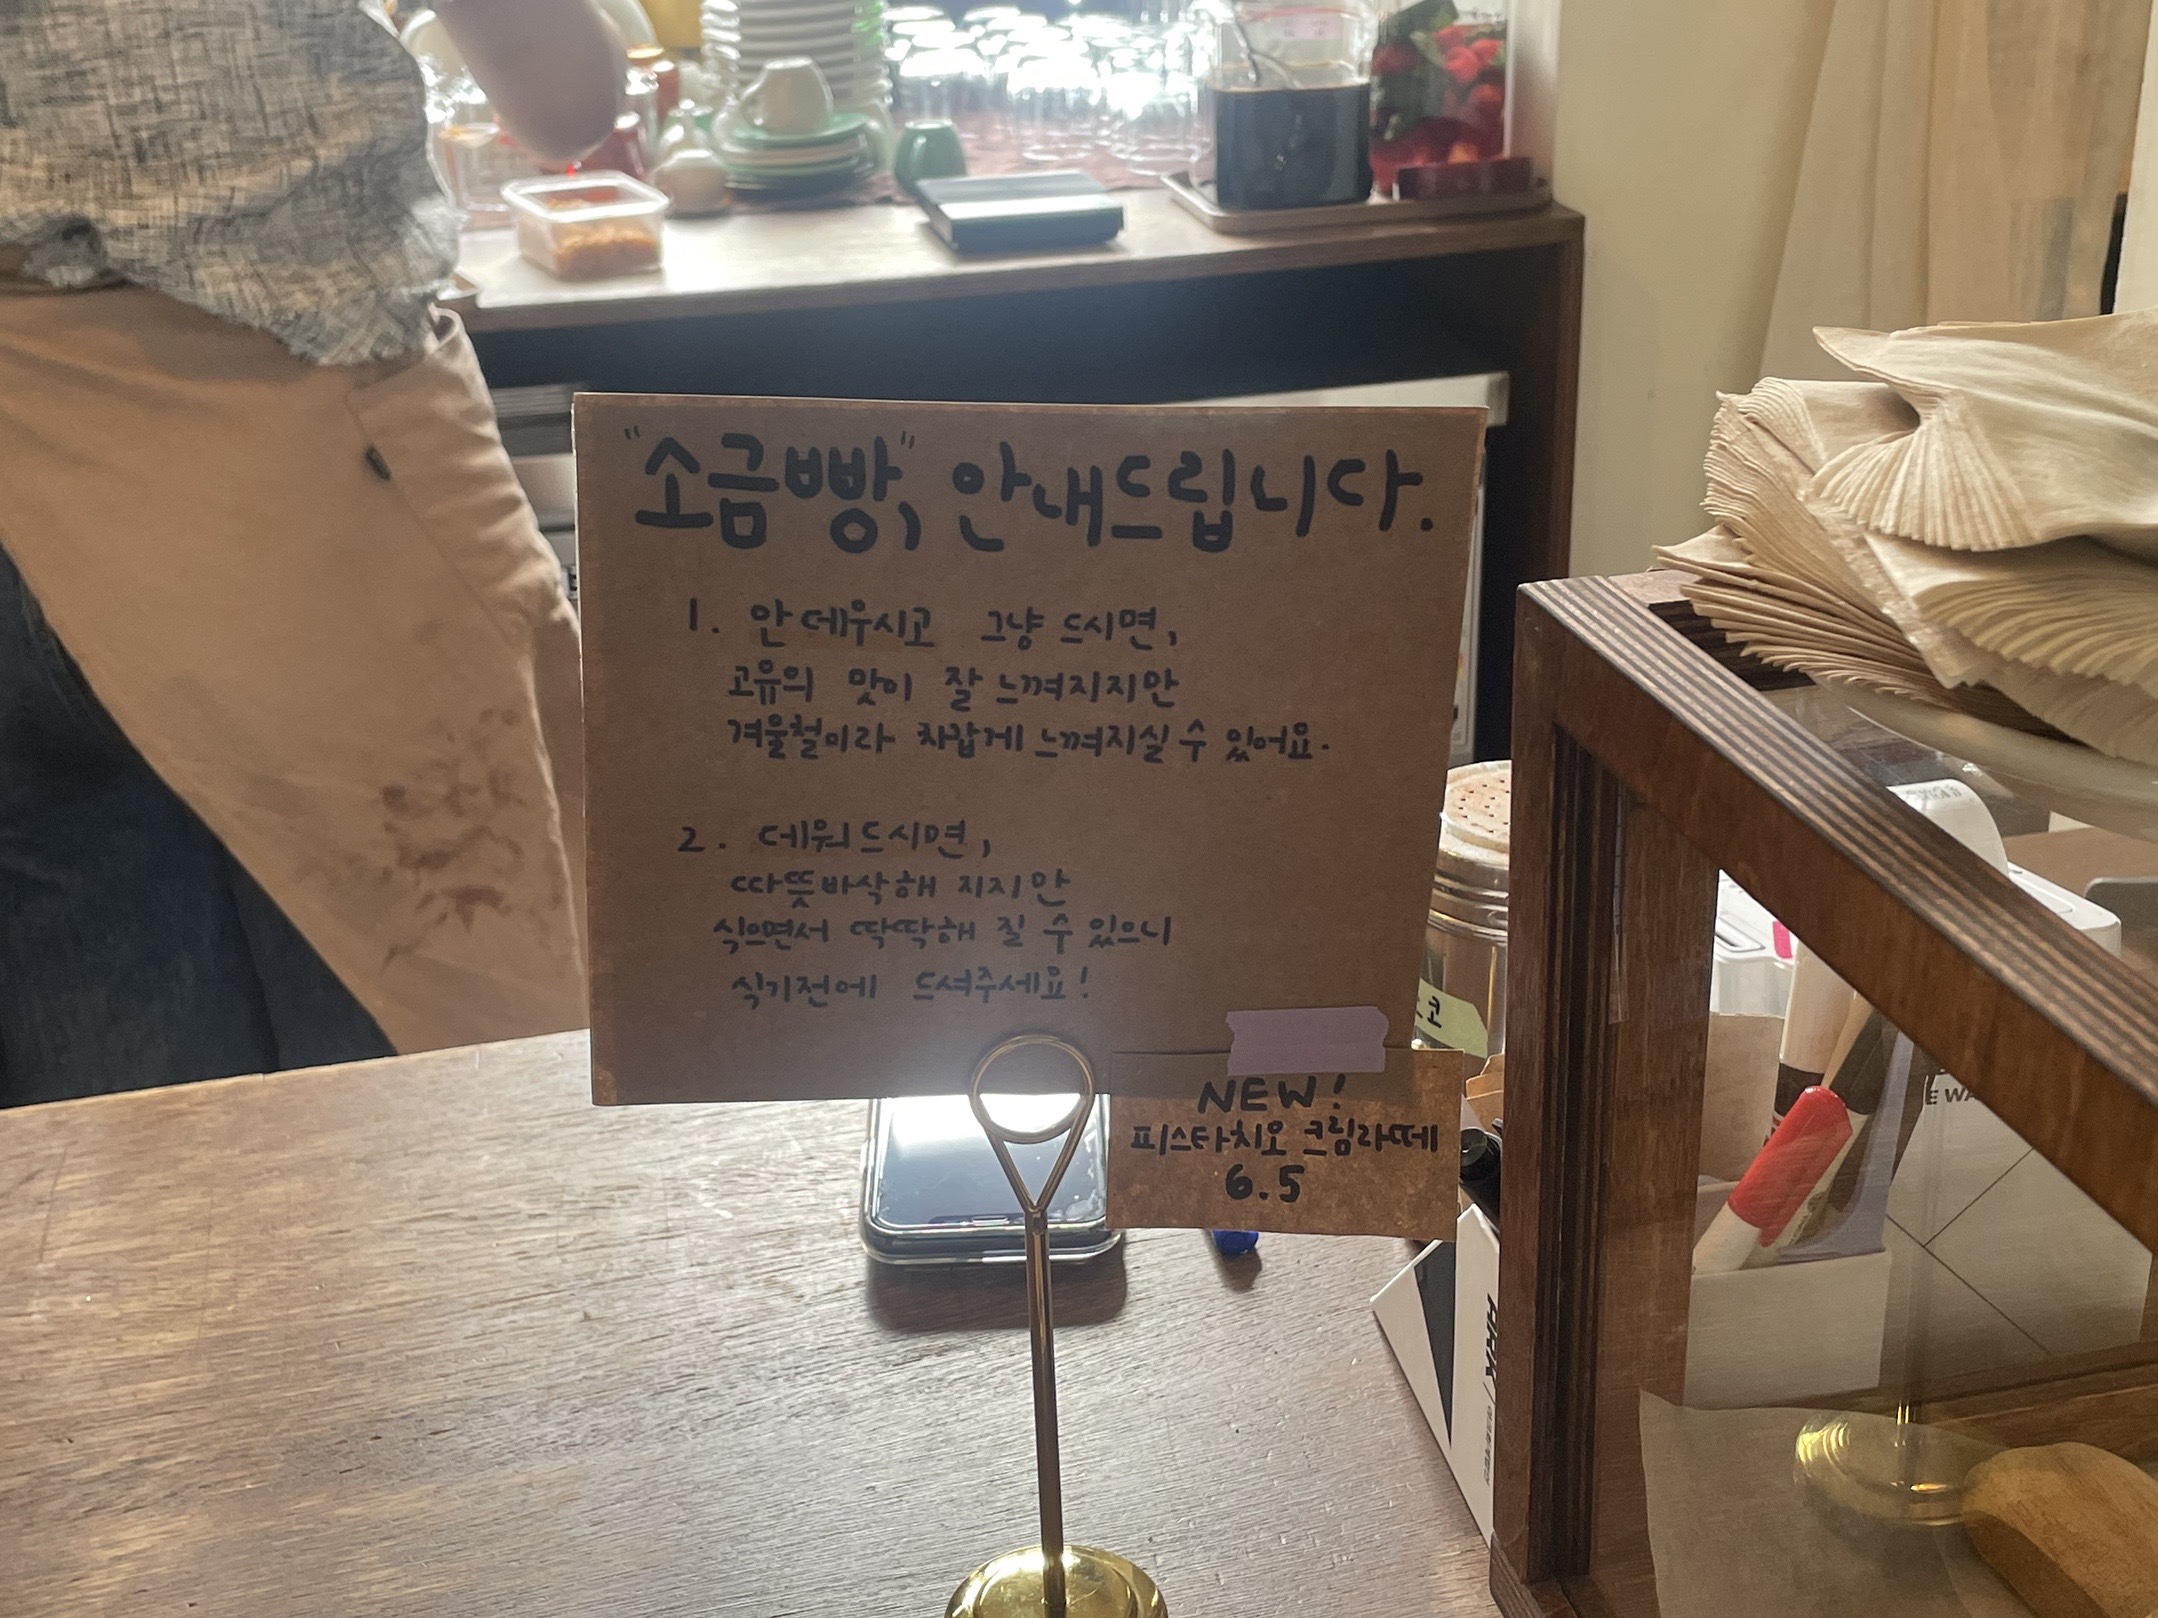 "소금빵", 안내드립니다.
1. 안 데우시고 그냥 드시면,
고유의 맛이 잘 느껴지지만
겨울철이라 차갑게 느껴지실 수 있어요.
2. 데워드시면,
따뜻바삭해 지지만
식으면서 딱딱해 질 수 있으니
식기전에 드셔주세요!
NEW!
피스타치오 크림라떼
6.5